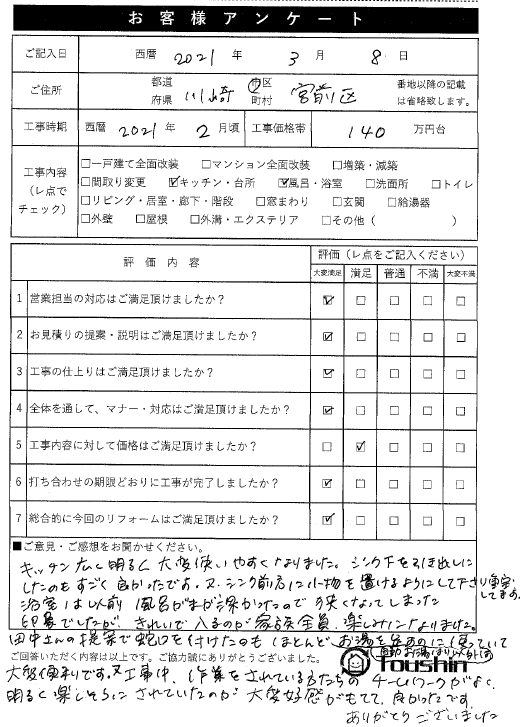 お客様アンケート
ご記入日 西暦 2021 年 3 月 8 日
ご住所 都道府県 川崎 市区町村 宮前区 番地以降の記載は省略致します。
工事時期 西暦 2021 年 2 月頃 工事価格帯 140 万円台
工事内容（レ点でチェック）
□一戸建て全面改装 □マンション全面改装 □増築・減築
□間取り変更 ☑キッチン・台所 ☑風呂・浴室 □洗面所 □トイレ
□リビング・居室・廊下・階段 □窓まわり □玄関 □給湯器
□外壁 □屋根 □外溝・エクステリア □その他（ ）
評価内容 評価（レ点をご記入ください）
大変満足 満足 普通 不満 大変不満
1 営業担当の対応はご満足頂けましたか？ ☑ □ □ □ □
2 お見積りの提案・説明はご満足頂けましたか？ ☑ □ □ □ □
3 工事の仕上りはご満足頂けましたか？ ☑ □ □ □ □
4 全体を通して、マナー・対応はご満足頂けましたか？ ☑ □ □ □ □
5 工事内容に対して価格はご満足頂けましたか？ □ ☑ □ □ □
6 打ち合わせの期限どおりに工事が完了しましたか？ ☑ □ □ □ □
7 総合的に今回のリフォームはご満足頂けましたか？ ☑ □ □ □ □
■ご意見・ご感想をお聞かせください。
キッチン広く明るく大変使いやすくなりました。シンク下を引き出しに
したのもすごく良かったです。又、シンク前に小物を置けるようにして下さり重宝
してます。
浴室は以前風呂がまが深かったので狭くなってしまった
印象でしたが、きれいで入るのが家族全員、楽しみになりました。
田中さんの提案で蛇口を付けたのもほとんどお湯を
大変便利です。又工事中、作業をされている方たちのチームワークがよく、
明るく楽しそうにされていたのが大変好感がもてて、良かったです。
ありがとうございました
ご回答いただく内容は以上です。ご協力誠にありがとうございました。
Toushin